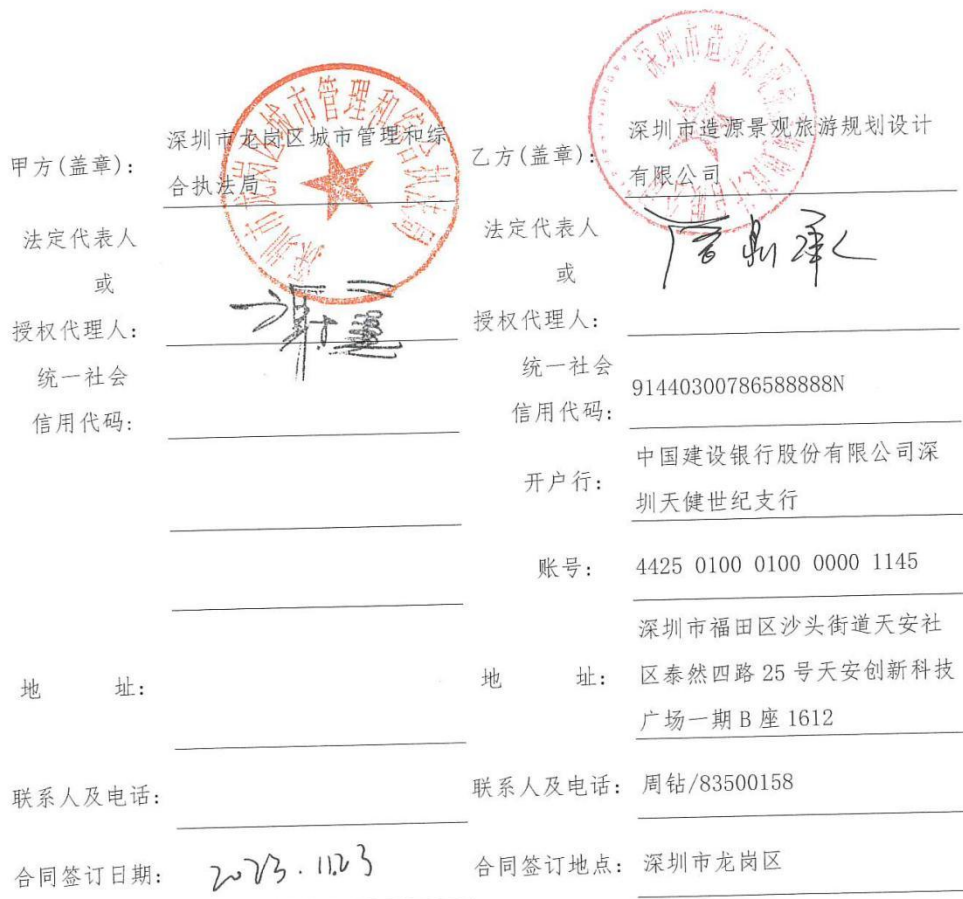 甲方(盖章):
深圳市龙岗区城市管理和综
合执法局
法定代表人
或
授权代理人:
统一社会
信用代码:
地 址:
联系人及电话:
合同签订日期:
2023.11.23
乙方(盖章):
深圳市造源景观旅游规划设计
有限公司
法定代表人
或
授权代理人:
统一社会
信用代码:
91440300786588888N
开户行:
中国建设银行股份有限公司深
圳天健世纪支行
账号:
4425 0100 0100 0000 1145
地 址:
深圳市福田区沙头街道天安社
区泰然四路 25 号天安创新科技
广场一期 B 座 1612
联系人及电话:
周钻/83500158
合同签订地点:
深圳市龙岗区